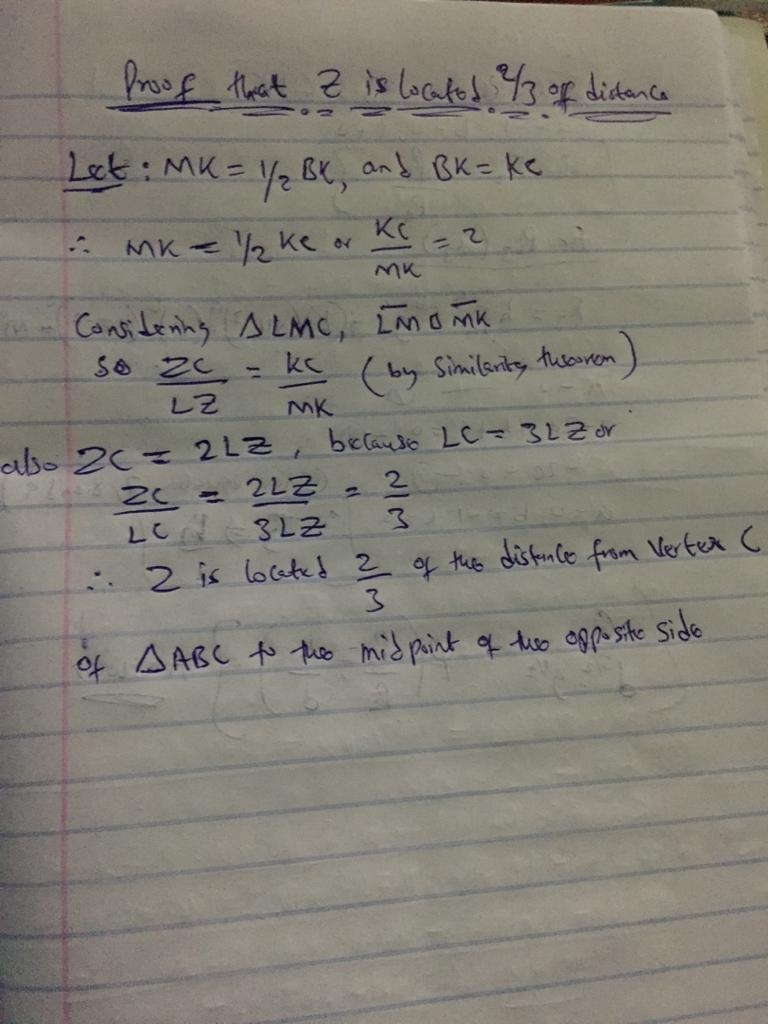 Proof that Z is located 2/3 of distance
Let: MK = 1/2 BK, and BK = KC
∴ MK = 1/2 KC or KC/MK = 2
Considering ΔLMC, LM □ MK
So ZC/LZ = KC/MK (by Similarity theorem)
also ZC = 2LZ, because LC = 3LZ or
ZC/LC = 2LZ/3LZ = 2/3
∴ Z is located 2/3 of the distance from Vertex C
of ΔABC to the midpoint of the opposite side